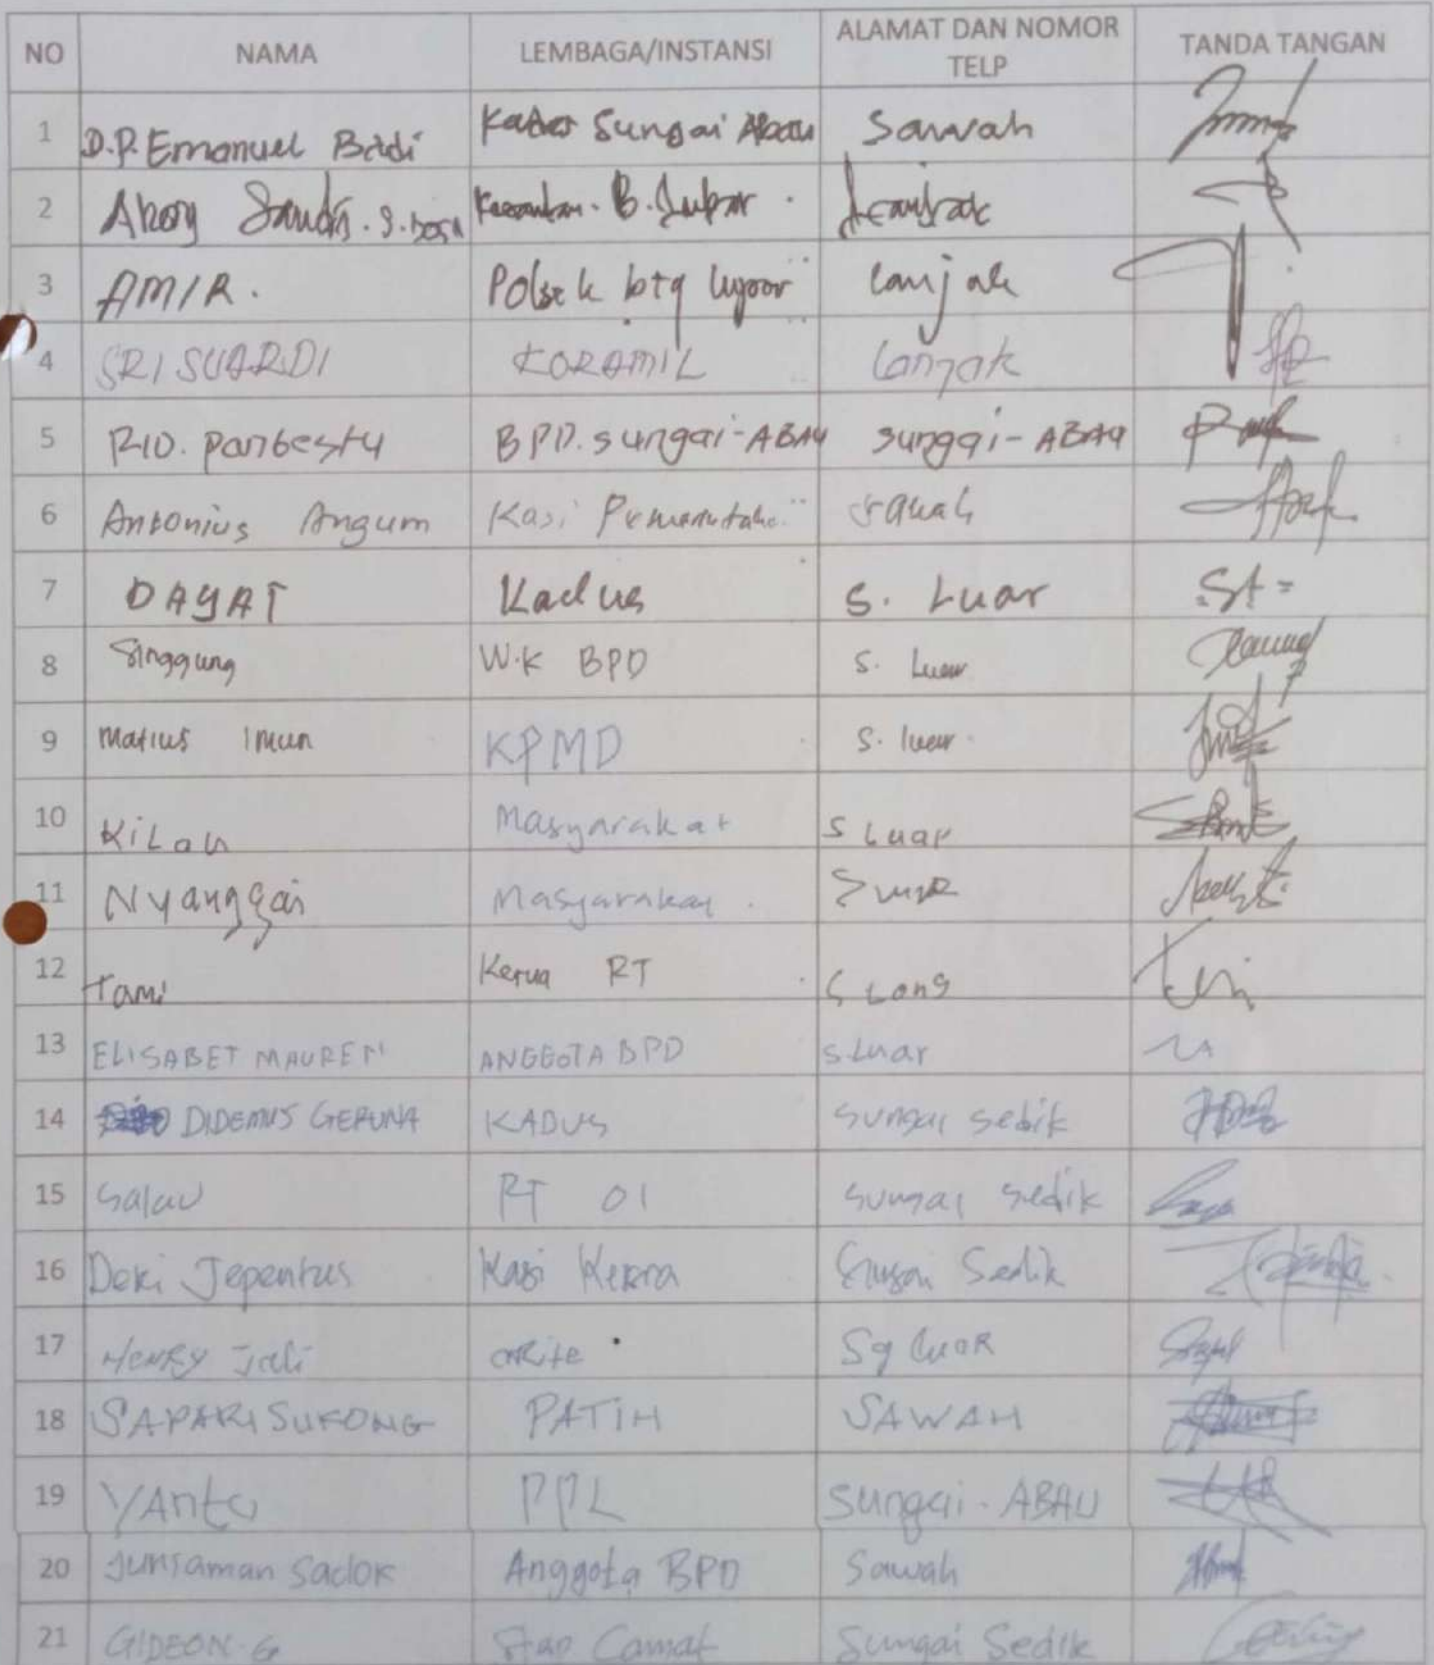 NO NAMA LEMBAGA/INSTANSI ALAMAT DAN NOMOR TELP TANDA TANGAN
1 D.P. Emanuel Badi Kades Sungai Abau Sawah
2 Sandi B. Lupar Lanjak
3 AMIR. Polsek btg lupar lanjak
4 SRI SUARDI KORAMIL Lanjak
5 RIO. panbestu BPD. sungai-ABAU sungai-ABAU
6 Antonius Angum Kasi Pemerintahan sawah
7 DAYAT Kadus S. Luar
8 Singgung W.K BPD S. Luar
9 Matius Imun KPMD S. luar
10 KiLau Masyarakat S Luar
11 Nyanggai Masyarakat
12 Tami Ketua RT S Long
13 ELISABET MAUREN ANGGOTA BPD S Luar
14 DIDEMUS GERUNA KADUS sungai sedik
15 Salau RT 01 sungai sedik
16 Deki Jepentus Kasi Kesra Sungai Sedik
17 HENRY Jali Sg luar
18 SAPARI SUKONG PATIH SAWAH
19 YAnto PPL sungai-ABAU
20 Junsaman Sadok Anggota BPD Sawah
21 GIDEON-G Staf Camat Sungai Sedik